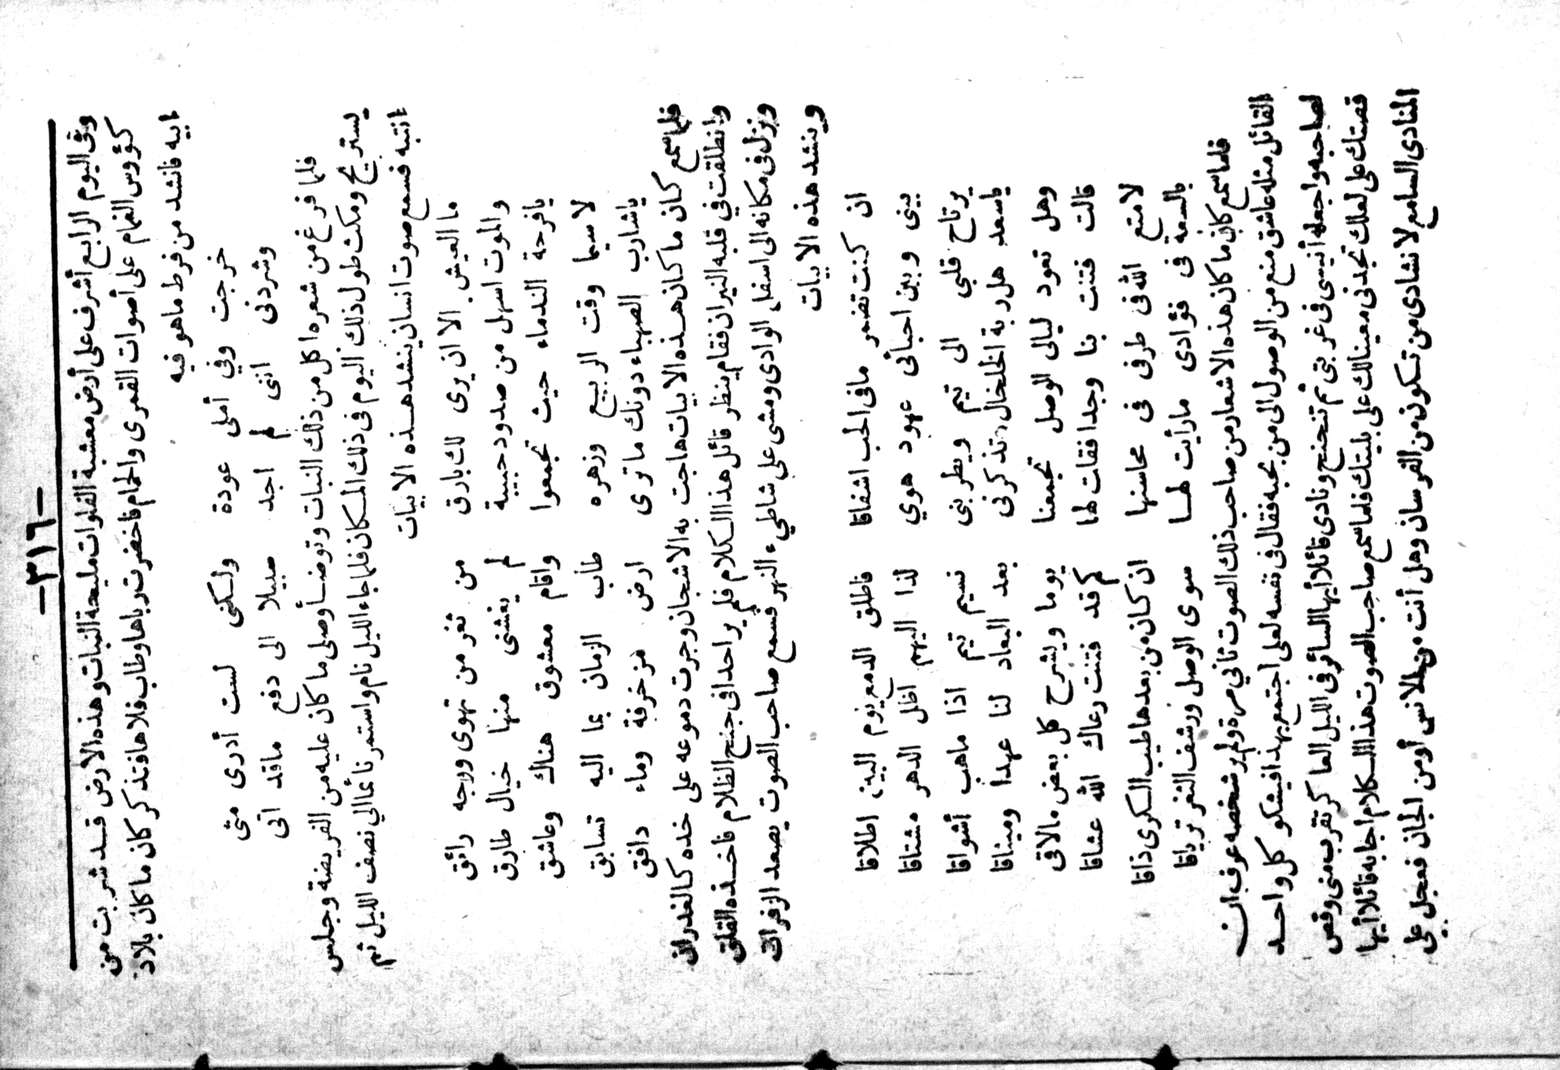 — ٣١٦ —
وفى اليوم الرابع أشرف على أرض معشبة الفلوات مليحة النبات وهذه الارض قد شربت من
كؤوس الغمام على أصوات القمرى والحمام فاخضرت رباها وطاب فلاها فتذكر كان ما كان بلاد
ابيه فانشد من فرط ما هو فيه
خرجت وفي أملى عودة ولكنى لست أدرى متى
وشردنى اننى لم اجد سبيلا الى دفع ماقد اتى
فلما فرغ من شعره اكل من ذلك النبات وتوضأ وصلى ما كان عليه من الفريضة وجلس
يستريح ومكث طول ذلك اليوم فى ذلك المكان فلما جاء الليل نام واستمر نائما الى نصف الليل ثم
انتبه فسمع صوت انسان ينشد هذه الابيات
ما العيش الا ان يرى لك بارق من ثغر من تهوى ووجه رائق
والموت اسهل من صدود حبيبة لم يغشنى منها خيال طارق
يافرحة الندماء حيث تجمعوا واقام معشوق هناك وعاشق
لا سيما وقت الربيع وزهره طاب الزمان بما اليه تسابق
ياشارب الصهباء دونك ماترى ارض مزخرفة وماء دافق
فلما سمع كان ما كان هذه الابيات هاجت به الاشجان وجرت دموعه على خده كالغدران
وانطلقت في قلبه النيران فقام ينظر قائل هذا الكلام فلم ير احدا فى جنح الظلام فاخذه القلق
ونزل فى مكانه الى اسفل الوادى ومشى على شاطىء النهر فسمع صاحب الصوت يصعد الزفرات
وينشد هذه الابيات
ان كنت تضمر مافى الحب اشفاقا فاطلق الدمع يوم البين اطلاقا
بينى وبين احبائى عهود هوي لذا اليهم اظل الدهر مشتاقا
يرتاح قلبى الى تيم ويطربنى نسيم تيم اذا ماهب أشواقا
ياسعد هل ربة الخلخال تذكرنى بعد البعاد لنا عهدا وميثاقا
وهل تعود ليالى الوصل تجمعنا يوما ويشرح كل بعض مالاقى
قالت فتنت بنا وجدا فقلت لها كم قد فتنت رعاك الله عشاقا
لامتع الله فى طرفى فى محاسنها ان كان من بعدها طيب الكرى ذاقا
يالسعة فى فؤادى مارأيت لها سوى الوصل ورشف الثغر ترياقا
فلما سمع كان ما كان هذه الاشعار من صاحب ذلك الصوت ثاني مرة ولم ير شخصه عرف ان
القائل مثله عاشق منع من الوصول الى من يحبه فقال فى نفسه لعلى اجتمع بهذا فيشكو كل واحد
لصاحبه واجعله أنيسى فى غربتى ثم تنحنح ونادى قائلا أيها السائر فى الليل العاكر تقرب منى وقص
قصتك على لعلك تجدنى معينا لك على بليتك فلما سمع صاحب الصوت هذا الكلام اجابه قائلا أيها
المنادى السامع لانشادى من تكون من الفرسان وهل أنت من الانس أو من الجان فعجل على